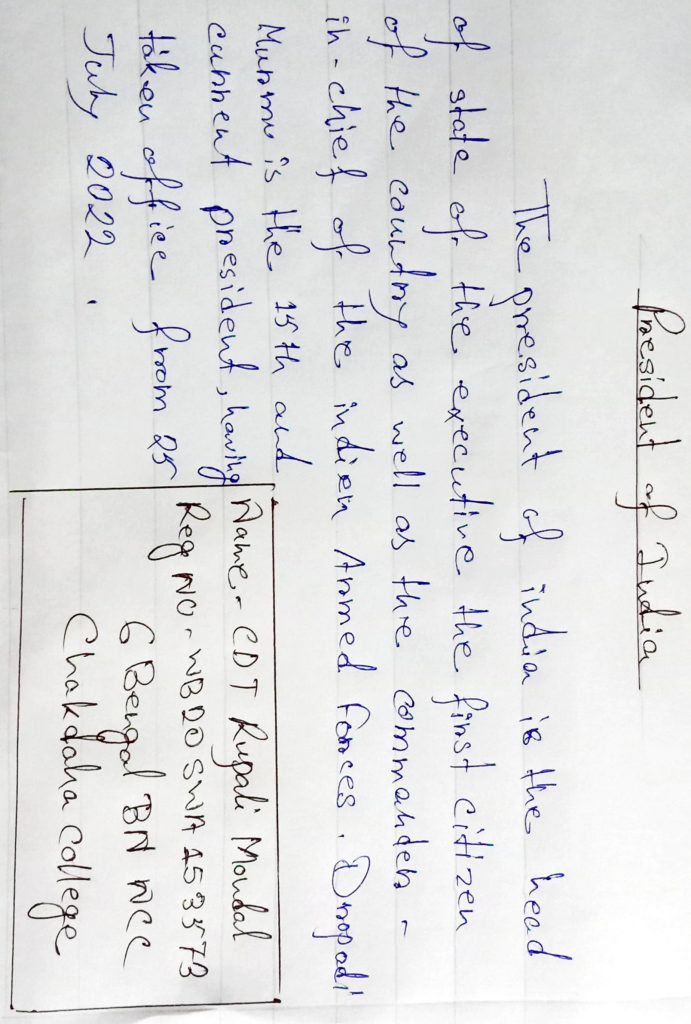 President of India
The president of india is the head
of state of the executive the first citizen
of the country as well as the commander-
in-chief of the indien Armed forces. Dropadi
Murmu is the 15th and
current president, having
taken office from 25
July 2022.
Name,- CDT Rupali Mondal
Reg NO- WB20SWA153573
6 Bengal BN NCC
Chakdaha College